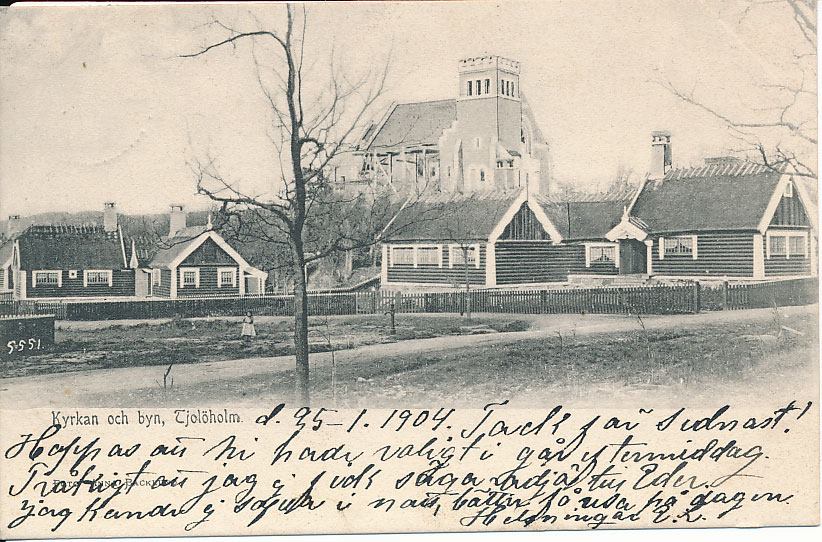 5551.
Kyrkan och byn, Tjolöholm. d. 25-1. 1904. Tack för sednast!
Hoppas att ni hade roligt i går eftermiddag.
Tråkigt att jag ej fick säga adjö till Eder.
jag kunde ej sofva i natt, bättre få resa på dagen.
Helsningar